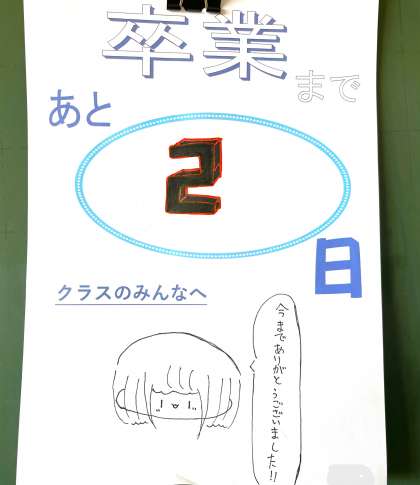 卒業まで
あと
2
日
クラスのみんなへ
今までありがとうございました!!